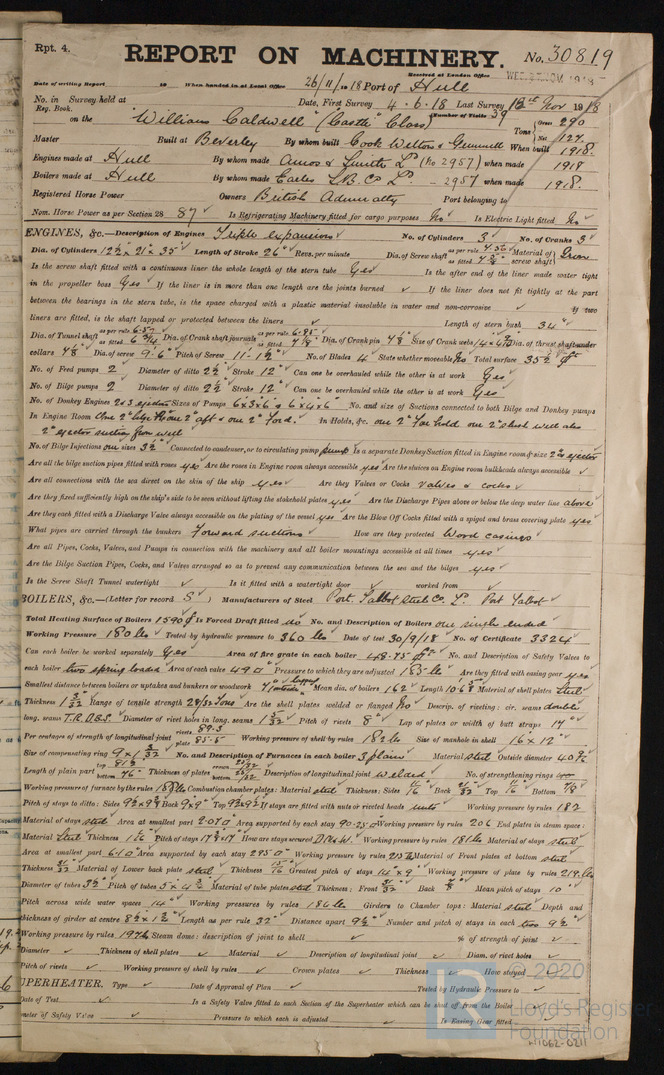 Rpt. 4.
REPORT ON MACHINERY. No. 30819
Received at London Office WED. 27 NOV. 1918
Date of writing Report 19 When handed in at Local Office 26/11/1918 Port of Hull
No. in Survey held at Date, First Survey 4.6.18 Last Survey Nov 1918
Reg. Book. (Number of Visits 39
on the "William Caldwell" (Castle Class) Tons Gross 290 Net 127
Master Built at Beverley By whom built Cook Welton & Gemmell When built 1918
Engines made at Hull By whom made Amos & Smith Ld (No 2957) when made 1918
Boilers made at Hull By whom made Earles S.B. Co Ld 2957 when made 1918
Registered Horse Power Owners British Admiralty Port belonging to
Nom. Horse Power as per Section 28 87 Is Refrigerating Machinery fitted for cargo purposes No Is Electric Light fitted No
ENGINES, &c.—Description of Engines Triple expansion No. of Cylinders 3 No. of Cranks 3
Dia. of Cylinders 12½ x 21 x 35" Length of Stroke 26" Revs. per minute Dia. of Screw shaft as per rule as fitted Material of screw shaft Iron
Is the screw shaft fitted with a continuous liner the whole length of the stern tube Yes Is the after end of the liner made water tight
in the propeller boss Yes If the liner is in more than one length are the joints burned If the liner does not fit tightly at the part
between the bearings in the stern tube, is the space charged with a plastic material insoluble in water and non-corrosive If two
liners are fitted, is the shaft lapped or protected between the liners Length of stern bush 34"
Dia. of Tunnel shaft as per rule 6.57 as fitted 6¾ Dia. of Crank shaft journals as per rule 6.85 as fitted 7⅛ Dia. of Crank pin 7⅛ Size of Crank webs Dia. of thrust shaft under
collars 7⅛ Dia. of screw 9-6 Pitch of Screw 11-1½ No. of Blades 4 State whether moveable No Total surface 35½ ft
No. of Feed pumps 2 Diameter of ditto 2½ Stroke 12" Can one be overhauled while the other is at work Yes
No. of Bilge pumps 2 Diameter of ditto 2½ Stroke 12" Can one be overhauled while the other is at work Yes
No. of Donkey Engines Sizes of Pumps 6x3x6 & 6x4x6 No. and size of Suctions connected to both Bilge and Donkey pumps
In Engine Room One 2" bilge one 2" aft & one 2" Ford. In Holds, &c. one 2" For hold one 2" well also
2" ejector suction from well
No. of Bilge Injections one sizes 3½" Connected to condenser, or to circulating pump pump Is a separate Donkey Suction fitted in Engine room & size 2" ejector
Are all the bilge suction pipes fitted with roses yes Are the roses in Engine room always accessible yes Are the sluices on Engine room bulkheads always accessible
Are all connections with the sea direct on the skin of the ship yes Are they Valves or Cocks valves & cocks
Are they fixed sufficiently high on the ship's side to be seen without lifting the stokehold plates yes Are the Discharge Pipes above or below the deep water line above
Are they each fitted with a Discharge Valve always accessible on the plating of the vessel yes Are the Blow Off Cocks fitted with a spigot and brass covering plate yes
What pipes are carried through the bunkers Forward suctions How are they protected Wood casings
Are all Pipes, Cocks, Valves, and Pumps in connection with the machinery and all boiler mountings accessible at all times yes
Are the Bilge Suction Pipes, Cocks, and Valves arranged so as to prevent any communication between the sea and the bilges yes
Is the Screw Shaft Tunnel watertight Is it fitted with a watertight door worked from
BOILERS, &c.—(Letter for record S) Manufacturers of Steel Port Talbot Steel Co. Ld. Port Talbot
Total Heating Surface of Boilers 1590 Is Forced Draft fitted no No. and Description of Boilers one single ended
Working Pressure 180 lbs Tested by hydraulic pressure to 360 lbs Date of test 30/9/18 No. of Certificate 3324
Can each boiler be worked separately Yes Area of fire grate in each boiler 48.75 ft No. and Description of Safety Valves to
each boiler two spring loaded Area of each valve 4.90 Pressure to which they are adjusted 185 lbs Are they fitted with easing gear yes
Smallest distance between boilers or uptakes and bunkers or woodwork Mean dia. of boilers 162 Length Material of shell plates steel
Thickness 1 3/32 Range of tensile strength 28/32 tons Are the shell plates welded or flanged No Descrip. of riveting: cir. seams double
long. seams T.R.D.B.S. Diameter of rivet holes in long. seams 1 3/32 Pitch of rivets 8" Lap of plates or width of butt straps 17"
Per centages of strength of longitudinal joint rivets 89.3 plate 85.5 Working pressure of shell by rules 182 lbs Size of manhole in shell 16 x 12"
Size of compensating ring No. and Description of Furnaces in each boiler 3 plain Material steel Outside diameter
Length of plain part top bottom 76" Thickness of plates crown bottom Description of longitudinal joint welded No. of strengthening rings
Working pressure of furnace by the rules Combustion chamber plates: Material steel Thickness: Sides 11/16 Back 21/32 Top 11/16 Bottom 7/8
Pitch of stays to ditto: Sides Back 9x9 Top If stays are fitted with nuts or riveted heads nuts Working pressure by rules 182
Material of stays steel Area at smallest part 2.070 Area supported by each stay 90.25 Working pressure by rules 206 End plates in steam space:
Material steel Thickness Pitch of stays How are stays secured D.N.&W. Working pressure by rules 181 lbs Material of stays steel
Area at smallest part 6.10 Area supported by each stay 295 Working pressure by rules Material of Front plates at bottom steel
Thickness 31/32 Material of Lower back plate steel Thickness 15/16 Greatest pitch of stays 14 x 9" Working pressure of plate by rules 219 lbs
Diameter of tubes 3½ Pitch of tubes Material of tube plates steel Thickness: Front 31/32 Back 7/8 Mean pitch of stays 10"
Pitch across wide water spaces 14" Working pressures by rules 186 lbs Girders to Chamber tops: Material steel Depth and
thickness of girder at centre 8½ x 1½ Length as per rule 32" Distance apart 9½ Number and pitch of stays in each two 9½"
Working pressure by rules Steam dome: description of joint to shell % of strength of joint
Diameter Thickness of shell plates Material Description of longitudinal joint Diam. of rivet holes
Pitch of rivets Working pressure of shell by rules Crown plates Thickness How stayed
UPERHEATER. Type Date of Approval of Plan Tested by Hydraulic Pressure to
Date of Test Is a Safety Valve fitted to each Section of the Superheater which can be shut off from the Boiler
meter of Safety Valve Pressure to which each is adjusted Is Easing Gear fitted
© 2020
Lloyd's Register
Foundation
LR
W1062-0211